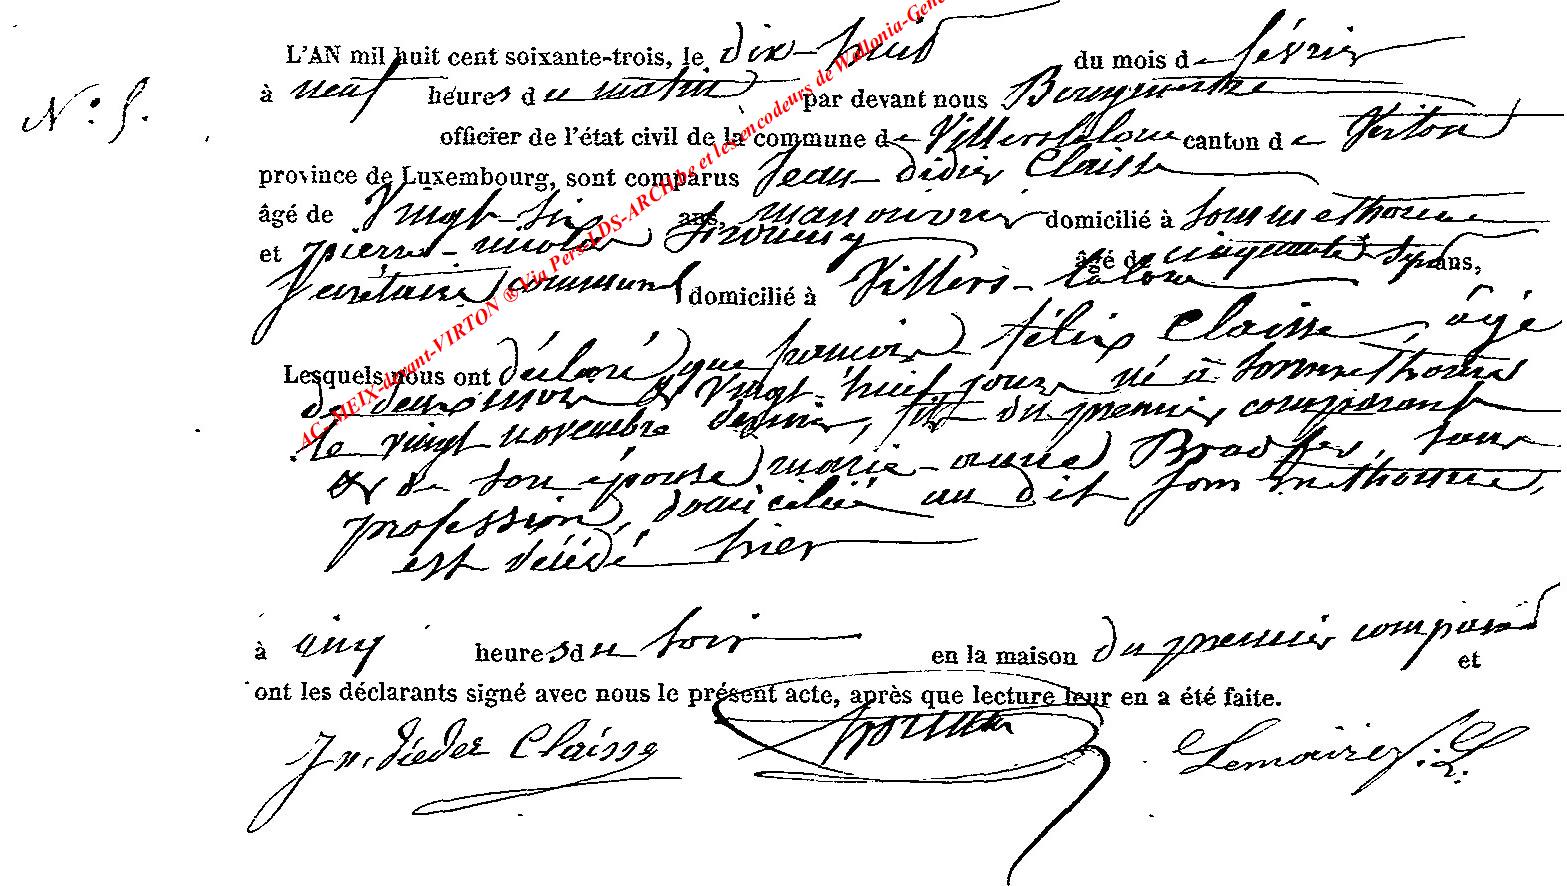 L'AN mil huit cent soixante-trois, le dix-huit du mois de février
N.º 5.
à neuf heures du matin par devant nous Bourgmestre
officier de l'état civil de la commune de Villers la loue canton de Virton
province de Luxembourg, sont comparus Jean-didier Claisse
âgé de Vingt-six ans, manouvrier domicilié à Sommethonne
et pierre-nicolas âgé de cinquante-sept ans,
Secrétaire communal domicilié à Villers-laloue
Lesquels nous ont déclaré que francois félix Claisse, âgé
de deux mois & vingt-huit jours né à Sommethonne
le vingt novembre dernier, fils du premier comparant
& de son épouse marie-anne sans
profession, domiciliée au dit Sommethonne,
est décédé hier
à cinq heures du soir en la maison du premier comparant et
ont les déclarants signé avec nous le présent acte, après que lecture leur en a été faite.
Jn. didier Claisse Lemaire
AC-MEIX-devant-VIRTON ® Via Pers-LDS-ARCH.be et les encodeurs de Wallonia-Gene